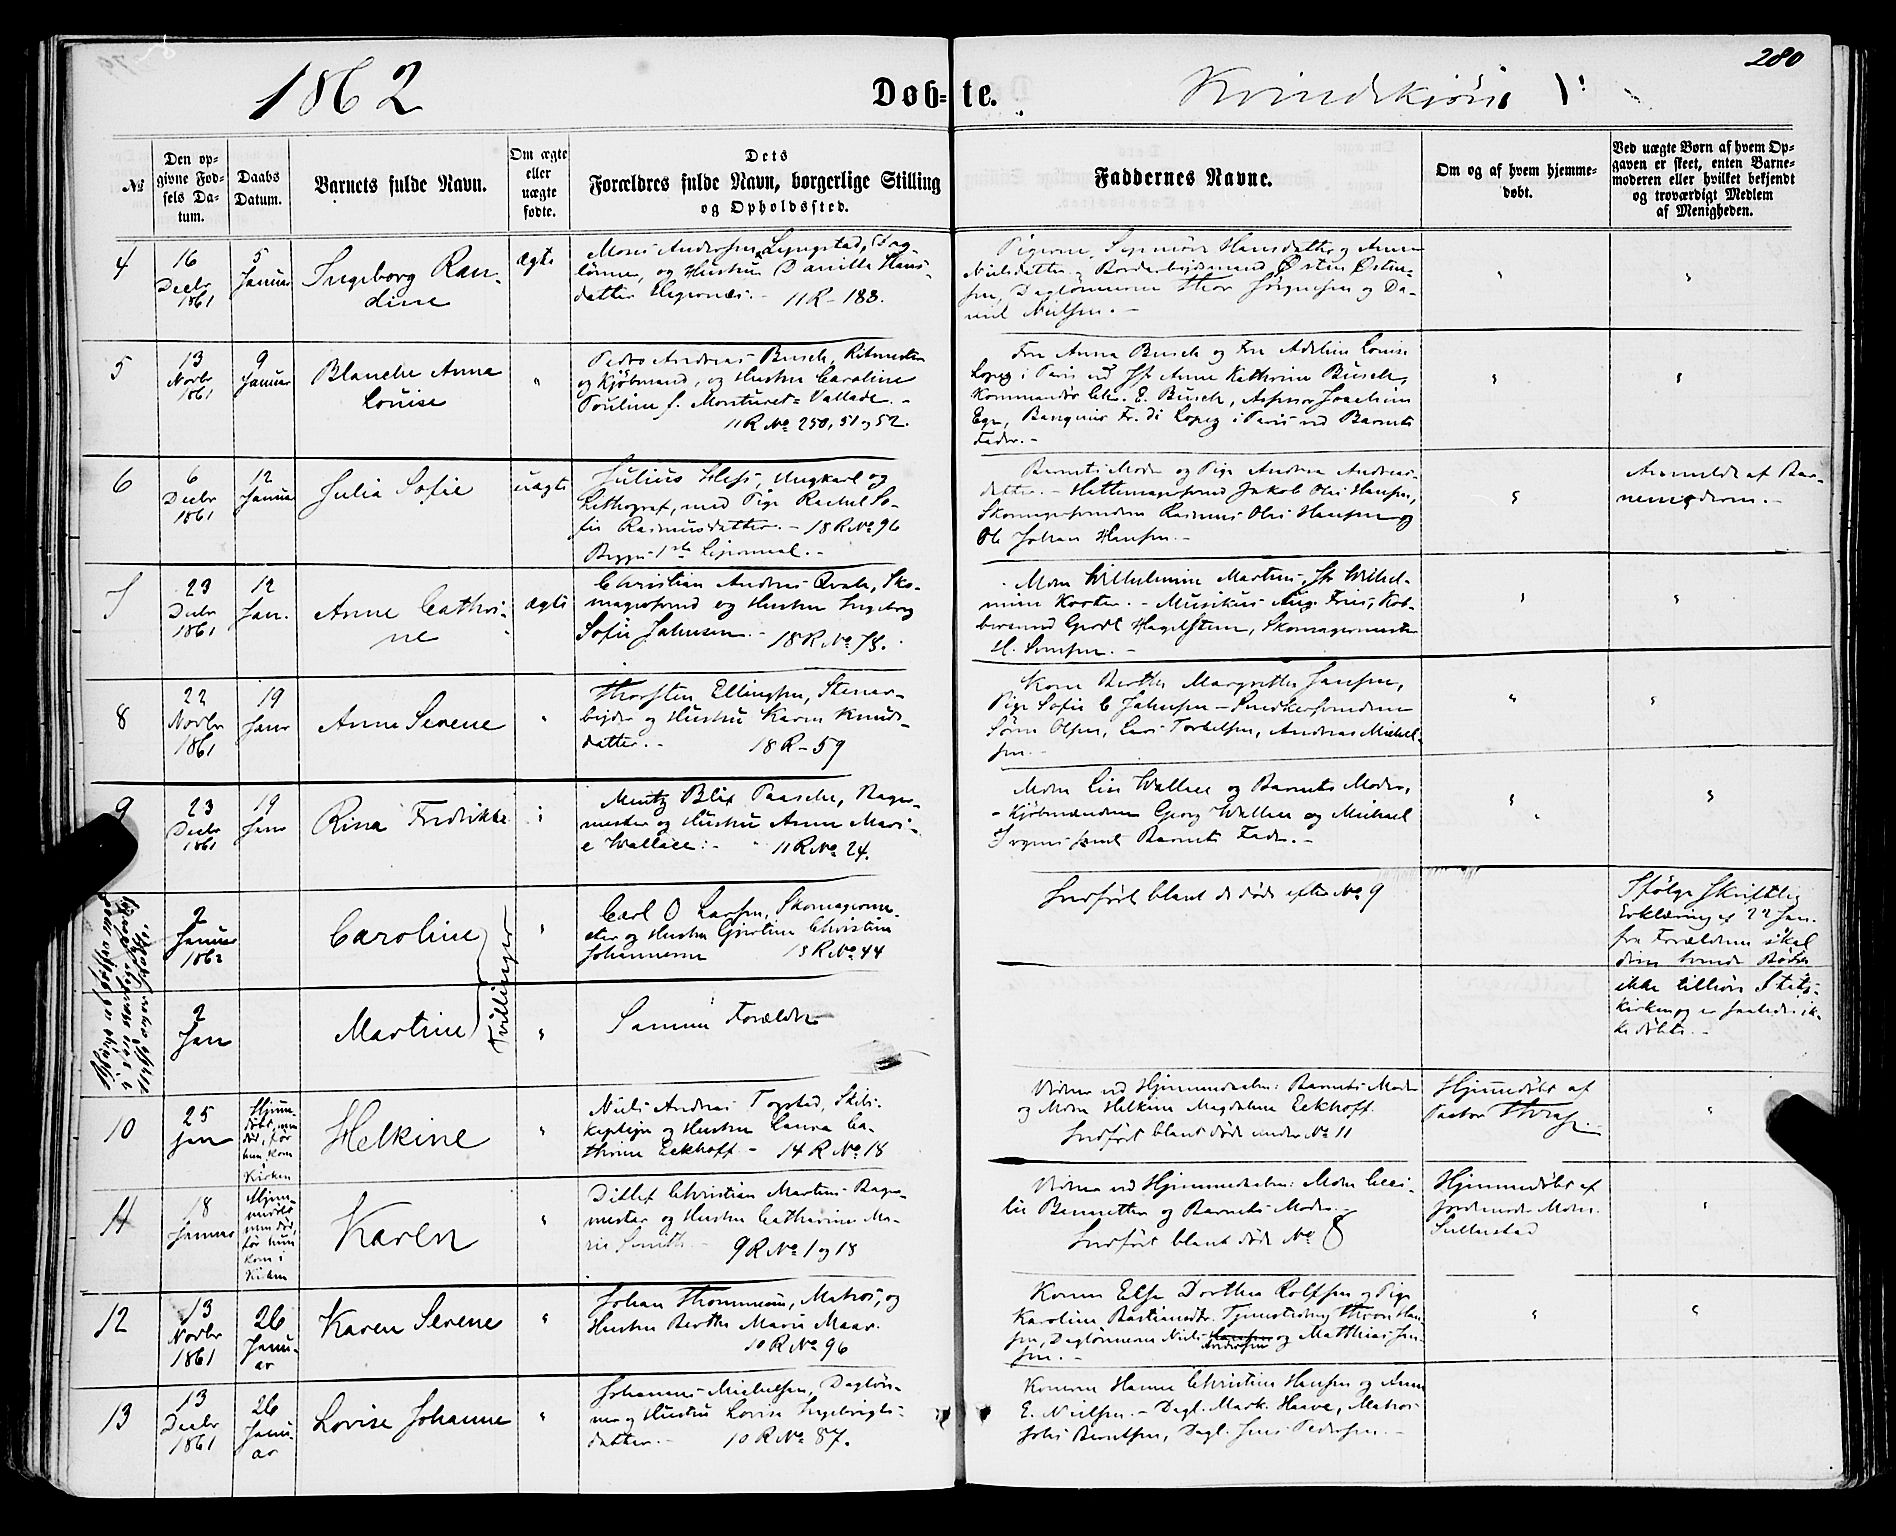 280
1862
Døb-te.
Kvindekjøn
№
Den op-
givne Fød-
sels Da-
tum.
Daabs
Datum.
Barnets fulde Navn.
Om ægte
eller
uægte
fødte.
Dets
Forældres fulde Navn, borgerlige Stilling
og Opholdssted.
Faddernes Navne.
Om og af hvem hjemme-
døbt.
Ved uægte Børn af hvem Op-
gaven er skeet, enten Barne-
moderen eller hvilket bekjendt
og troværdigt Medlem
af Menigheden.
4
16
Decbr
1861
5
Januar
Ingeborg Ran-
dine
ægte
Andersen Lyngstad, Dag-
lønner, og Hustru Danille Hans-
datter 11 R - 188.
Pigerne Hansdatter og Anne
Nielsdatter Østen Østen-
sen, Daglønnerne Thor Jørgensen og Da-
niel Nielsen. -
5
13
Novbr
1861
9
Januar
Blanche Anna
Louise
"
Pedro Andreas Busch, Ritmester
og Kjøbmand, og Hustru Caroline
Pauline f. Vallade. -
11 R № 250, 51 og 52.
Fru Anna Busch og Fru Adeline Louise
Lopez i Paris ved Jfr Anne Kathrine Busch,
Kommandør Chr. E. Busch, Assessor Joachim
Fr. di Lopez i Paris ved Barnets
Fader. -
6
6
Decbr
1861
12
Januar
Julia Sofie
uægte
Julius Hess, Ungkarl og
Lithograf, med Pige Rachel So-
fie Rasmusdatter. - 18 R № 96
Begges 1ste Leiermaal. -
Barnets Moder og Pige Andrea Andreas-
datter. - Hattemagersvend Jakob Olai Hansen,
Skomagersvendene Rasmus Olai Hansen og
Ole Johan Hansen. -
Anmeldt af Bar-
nemoderen. -
7
23
Decbr
1861
12
Jan.
Anne Cathri-
ne
ægte
Christian Andreas Qvale, Sko-
magersvend og Hustru Ingeborg
Sofie Johnsen. - 18 R № 78.
Mdm Wilhelmine Martens, Jfr Wilhel-
mine Koster. - Musikus Aug. Fries, Kob-
bersmed Gerdt Hagelsteen, Skomagermester
H. -
8
22
Novbr
1861
19
Janr
Anne Serene
"
Thorsten Ellingsen, Stenar-
beider og Hustru Karen Knuds-
datter. - 18 R - 59
Kone Berthe Margrethe Jansen,
Pige Sofie C Johnsen - Snedkersvendene
Søren Olsen, Lars Torkelsen, Andreas Mikkel-
sen. -
9
23
Decbr
1861
19
Janr
Rina Fredrikke
"
Mentz Blix Paasche, Bager-
mester og Hustru Anne Mari-
e Wallace. - 11 R № 24.
Mdm Lise Wallace og Barnets Moder,
- Kjøbmændene Georg Wallace og Michael
Irgens samt Barnets Fader. -
2
Januar
1862
Caroline
"
Carl O Larsen, Skomagerme-
ster og Hustru Gjertine Christine
Johannesen 13 R № 44
Indført blant de døde efter № 9
Ifølge Skriftlig
Erklæring af 22 Jan.
fra Forældrene skal
dem tvende Børn
ikke tilhøre Stats-
kirken og er saaledes ik-
ke døbte. -
2
Jan
Martine
Tvillinger
"
Samme Forældre
10
25
Jan
Hjem-
døbt, men
død, før
hun kom
i
Kirken
Helkine
"
Niels Andreas Togstad, Skibs-
kaptejn og Hustru Laura Ca-
thrine Eckhoff - 14 R № 18
Vidner ved Hjemmedaaben: Barnets Moder
og Mdm Helkine Magdalene Eckhoff.
Indført blant døde under № 11
Hjemmedøbt af
Pastor
11
18
Januar
Hjem-
medøbt
men død,
før hun
kom i
Kirken
Karen
"
Ditlef Christian Martens Bager-
mester og Hustru Catharine Ma-
rie Smith. - 9 R № 1 og 18
Vidner ved Hjemmedaaben: Mdm Ceci-
lie Bennetter og Barnets Moder. -
Indført blant døde № 8
Hjemmedøbt af
Jordemoder Mdm.
12
13
Novbr
1861
26
Janu-
ar
Karen Serene
"
Johan Thommesen, Matros, og
Hustru Berthe Marie Maar.
10 R № 96
Konen Else Dorthea Rolfsen og Pige
Karoline Bastiansdtr. Tjenestedreng Thron Han-
sen, Daglønnerne Niels Andersen og Matthias Jen-
sen. -
13
13
Decbr
1861
26
Janu-
ar
Lovise Johanne
"
Johannes Michelsen, Dagløn-
ner og Hustru Lovise Ingebrigts-
datter. - 10 R № 87.
Konerne Hanne Christine Hansen og Anne
E. Nielsen. - Dagl. Mark. Haave, Matros
Berntsen, Dagl. Jens Pedersen. -